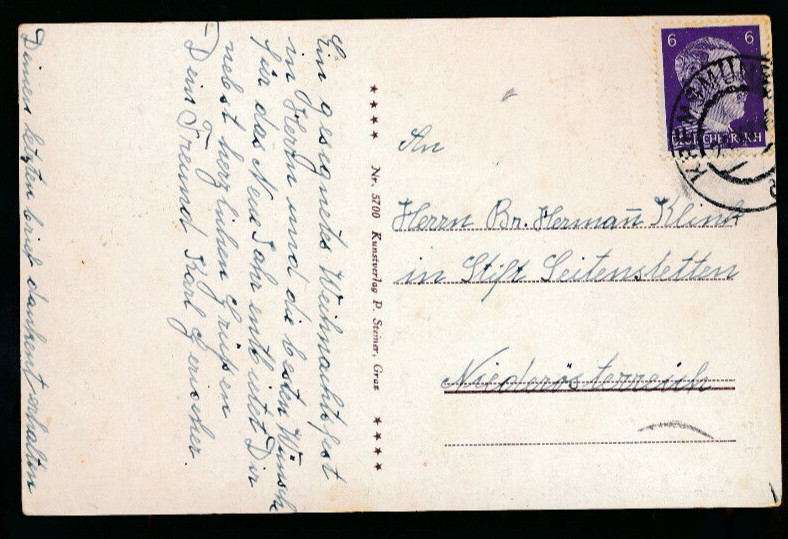 Ein gesegnetes Weihnachtsfest
im Herrn und die besten Wünsche
für das Neue Jahr entbietet Dir
nebst herzlichen Grüßen
Dein Freund Karl
Deinen letzten Brief dankent erhalten
★★★★ Nr. 5700 Kunstverlag P. Steiner, Graz ★★★★
6 6
KREMSMÜN
An
Herrn Br. Hermañ Klink
in Stift Seitenstetten
Niederösterreich